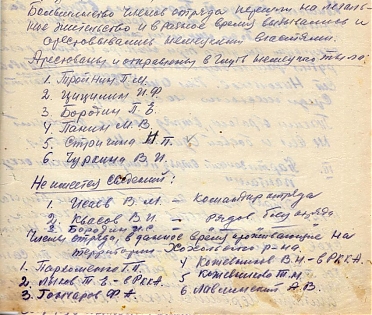 Большинство членов отряда перешли на легаль-
ное жительство и в разное время вызывались и
арестовывались немецкими властями.
Арестованы и отправлены в глубь немецкого тыла:
1. Тройнин П.М.
2. Цицилин И.Ф
3. Бородин П.Е.
4 Панин М.В.
5. Стрыгина Н.П.
6. Чуркина В.И.
Не имеется сведений:
1. Исаев В.М. – командир отряда
2. Квасов В.И. – рядов. боец отряда
3. Бородин
Члены отряда, в данное время проживающие на
территории Хохольского р-на.
1. Пархоменко Т.П.
2. Лыков Т.Е. – в РККА.
3. Гончаров Ф.А.
4 Кожевников В.И. – в РККА.
5 Кожевникова Т.И.
6. Лавсинский А.В.